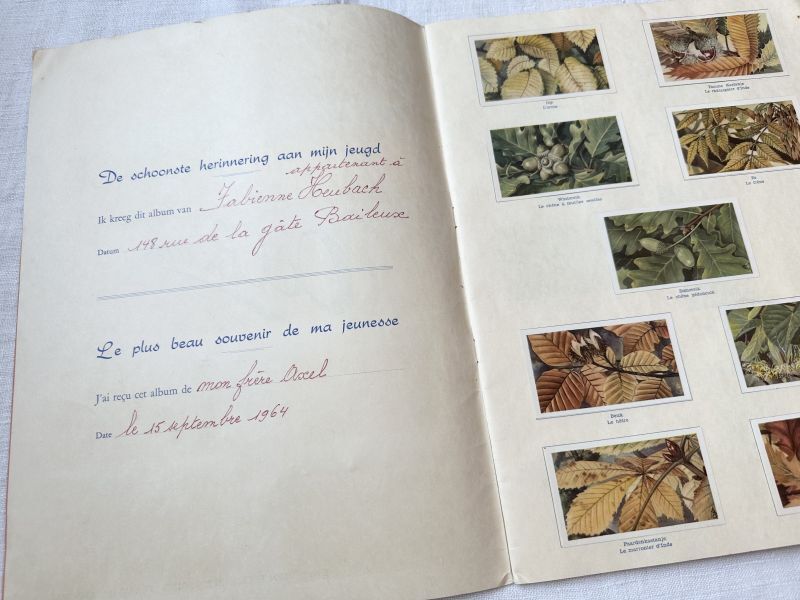 De schoonste herinnering aan mijn jeugd
appartenant à
Ik kreeg dit album van Fabienne Heubach
Datum 148 rue de la gâte Baileux
Le plus beau souvenir de ma jeunesse
J'ai reçu cet album de mon frère Axel
Date le 15 septembre 1964
Iep
L'orme
Tamme Kastanje
Le châtaignier d'Inde
Wintereik
Le chêne à feuilles sessiles
Es
Le frêne
Zomereik
Le chêne pédonculé
Beuk
Le hêtre
Paardenkastanje
Le marronier d'Inde